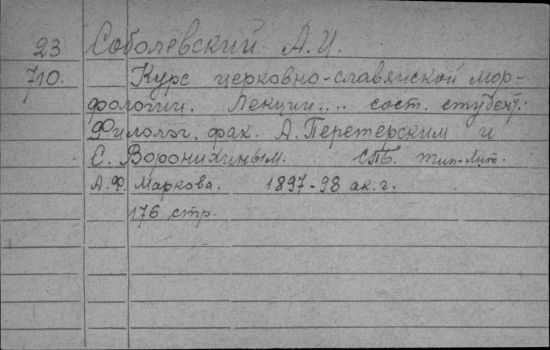 23 Соболевский А.И.
710. Курс церковно-славянской мор-
фологии. Лекции.... сост. студент.
Филолог. фак. А. Перетерским и
С. Воронихиным. СПб. тип.-лит.
А.Ф. Маркова. 1897-98 ак. г.
176 стр.